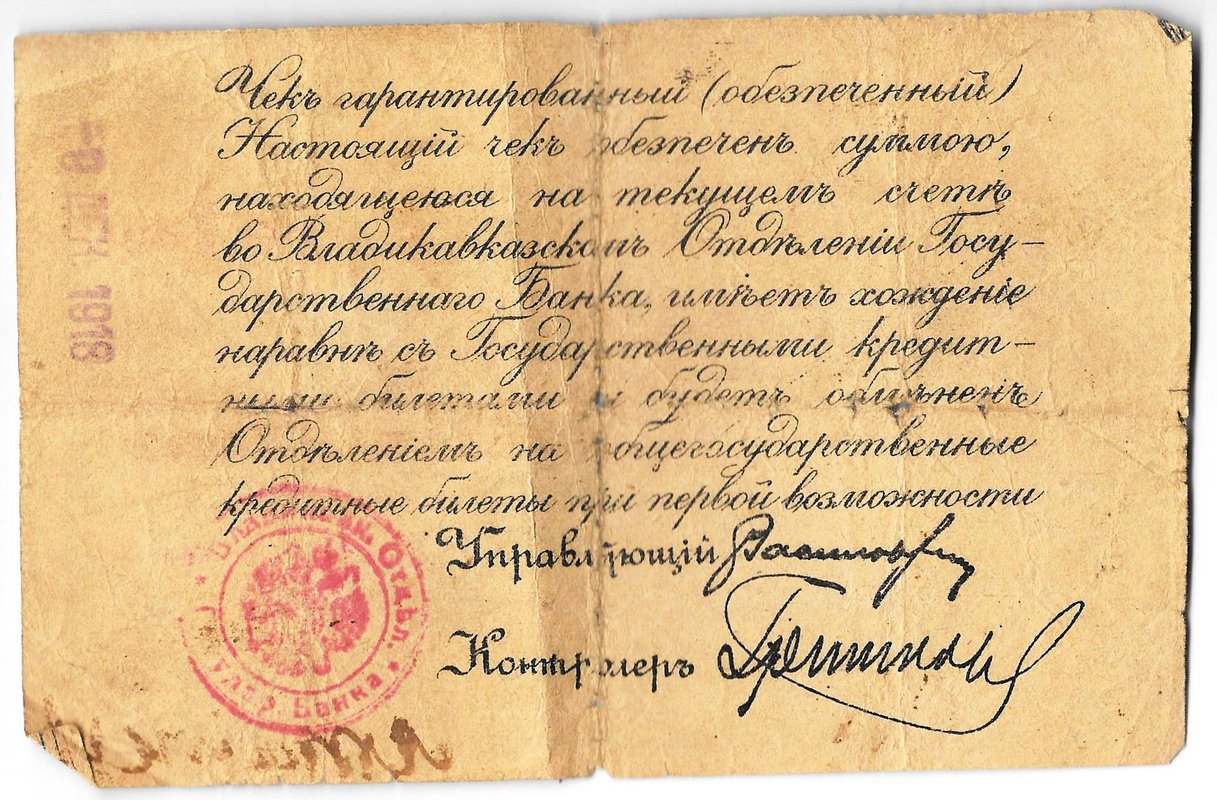 Чекъ гарантированный (обезпеченный)
Настоящій чекъ обезпеченъ суммою,
находящеюся на текущемъ счетѣ
во Владикавказскомъ Отдѣленіи Госу-
дарственнаго Банка, имѣетъ хожденіе
наравнѣ съ Государственными кредит-
ными билетами и будетъ обмѣненъ
Отдѣленіемъ на общегосударственные
кредитные билеты при первой возможности
Управляющій
Контролеръ
Отдѣл.
Банка
ДЕК. 1918